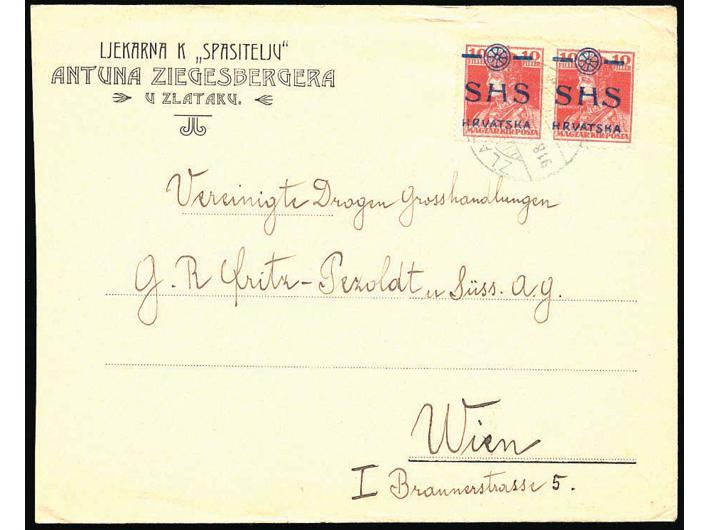 LJEKARNA K „SPASITELJU"
ANTUNA ZIEGESBERGERA
U ZLATARU.
10 10
FILLER
SHS
HRVATSKA
MAGYAR KIR. POSTA
10 10
FILLER
SHS
HRVATSKA
MAGYAR KIR. POSTA
ZLA
918
Vereinigte Drogen Grosshandlungen
G. R Fritz-Pezoldt u Süss. A.G.
Wien
I Braunerstrasse 5.